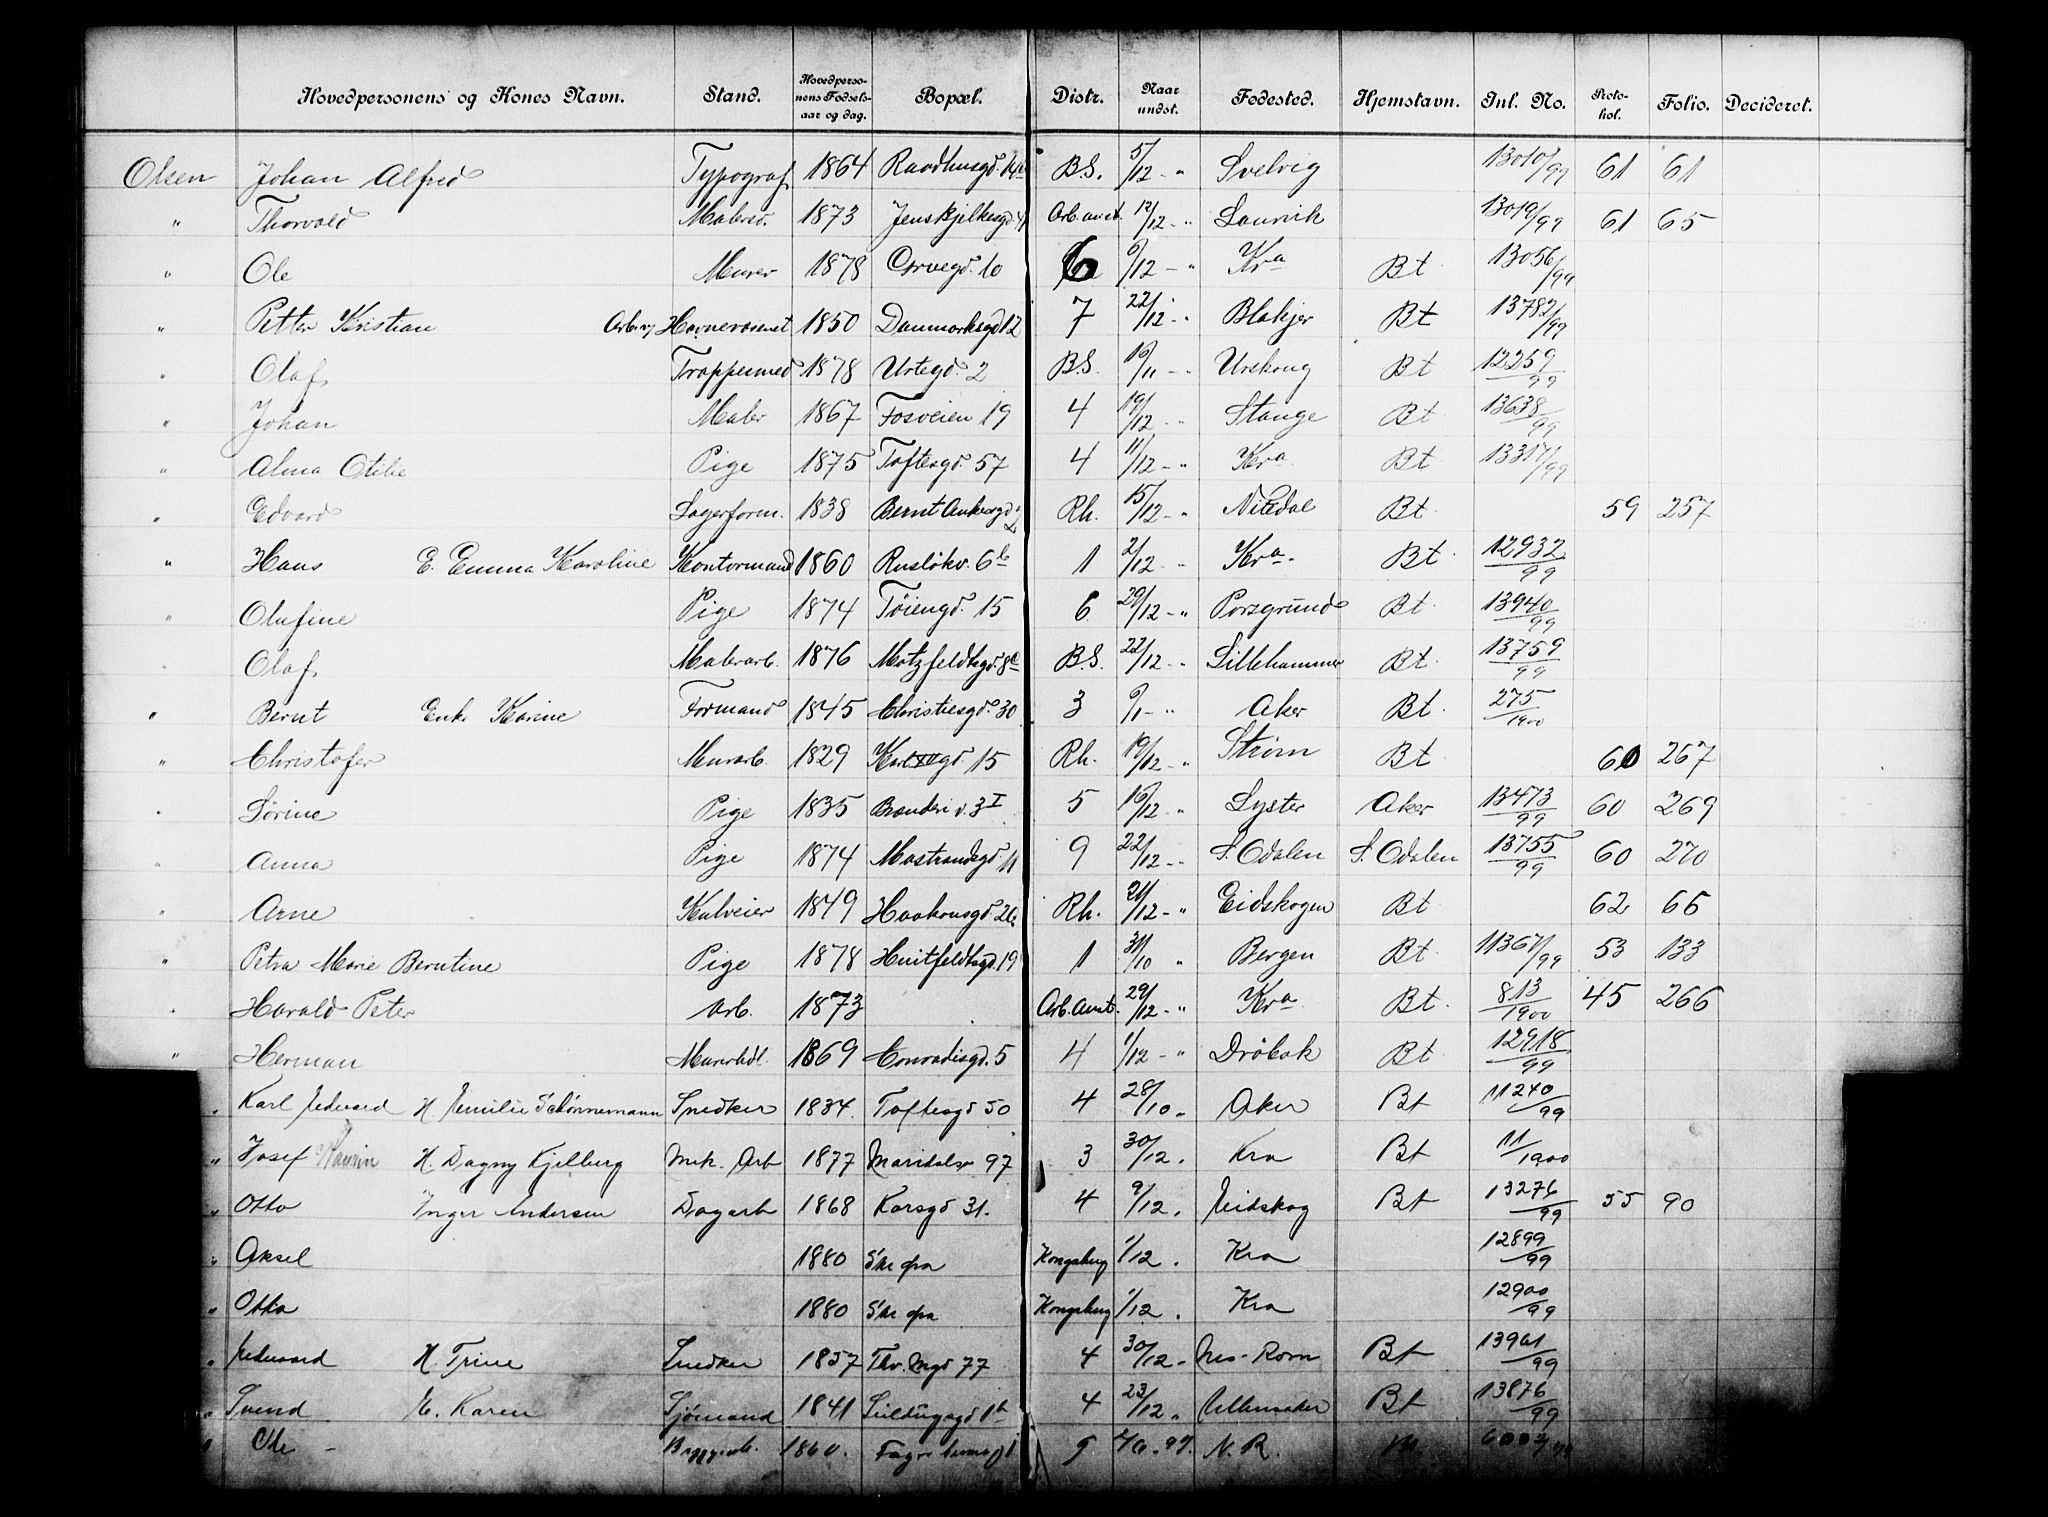 Hovedpersonens og Kones Navn. Stand. Hovedpersonens Fødselsaar og dag. Bopæl. Distr. Naar undst. Fødested. Hjemstavn. Inl. No. Protokol. Folio. Decideret.
Olsen Johan Alfred Typograf 1864 Raadhusgd. B.S. 5/12 - " Svelvig 13010/99 61 61
" Thorvald Malersv. 1873 Jens Bjelkesgd Arb. anst. 12/12 - " Laurvik 13019/99 61 65
" Ole Murer 1878 10 6 9/12 - " Kra Bt 13056/99
" Petter Kristian Arb. v/ Havnevæsenet 1850 Danmarksgd 12 7 22/12 - " Blakjer Bt 13782/99
" Olaf Trappesmed 1878 Urtegd. 2 B.S. 16/11 - " Urskoug Bt 12259/99
" Johan Maler 1867 Fosveien 19 4 19/12 " Stange Bt 13638/99
" Alma Otilie Pige 1875 Toftesgd. 57 4 11/12 - " Kra Bt 13317/99
" Edvard Lagerform. 1838 Bernt Ankersgd Rh. 15/12 - " Nittedal Bt 59 257
" Hans E. Emma Karoline Kontormand 1860 Rusløkv. 6b 1 2/12 - " Kra Bt 12932/99
" Olufine Pige 1874 Tøiengd. 15 6 29/12 - " Porsgrund Bt 13940/99
" Olaf Malerarb. 1876 Motzfeldtsgd. 8c B.S. 22/12 - " Lillehammer Bt 13759/99
" Bernt Enke Karine Formand 1845 Christiesgd. 30 3 9/1 - " Aker Bt 275/1900
" Christofer Murarb. 1829 Karl XII gd 15 Rh. 19/12 - " Strøm Bt 60 267
" Sørine Pige 1835 Brænderi v. 3 I 5 16/12 " Lyster Aker 13473/99 60 269
" Anna Pige 1874 Mostrandsgd 11 9 22/12 - " S. Odalen S. Odalen 13755/99 60 270
" Arne Kulveier 1849 Haakonsgd Rh. 21/12 - " Eidskogen Bt 62 66
" Petra Marie Berntine Pige 1878 Huitfeldtsgd. 19 1 31/10 " Bergen Bt 11367/99 53 133
" Harald Peter Arb. 1873 Arb. Anst. 29/12 - " Kra Bt 813/1900 45 266
" Herman Murerhdl. 1869 Conradisgd. 5 4 1/12 - " Drøbak Bt 12918/99
" Karl Edvard H Emilie Schønnemann Snedker 1834. Toftesgd 50 4 28/10 " Aker Bt 11240/99
" Josef H. Dagny Kjelberg Mek. Arb 1877 Maridalsv 97 3 30/12. Kra Bt 11/1900
" Otto Inger Andersen Dagarb 1868 Korsgd 31. 4 9/12. Eidskog Bt 13276/99 55 90
" Aksel 1880 Kongsberg 1/12. Kra 12899/99
" Otto 1880 Kongsberg 1/12. Kra 12900/99
" Edvard H. Trine Snedker 1857 Thv. Mgd 77 4 30/12 - Nes - Rom Bt 13961/99
" Svend H. Karen Sjømand 1841 4 23/12 " Ullensaker Bt 13876/99
" Ole - 1860. 9 N. R.